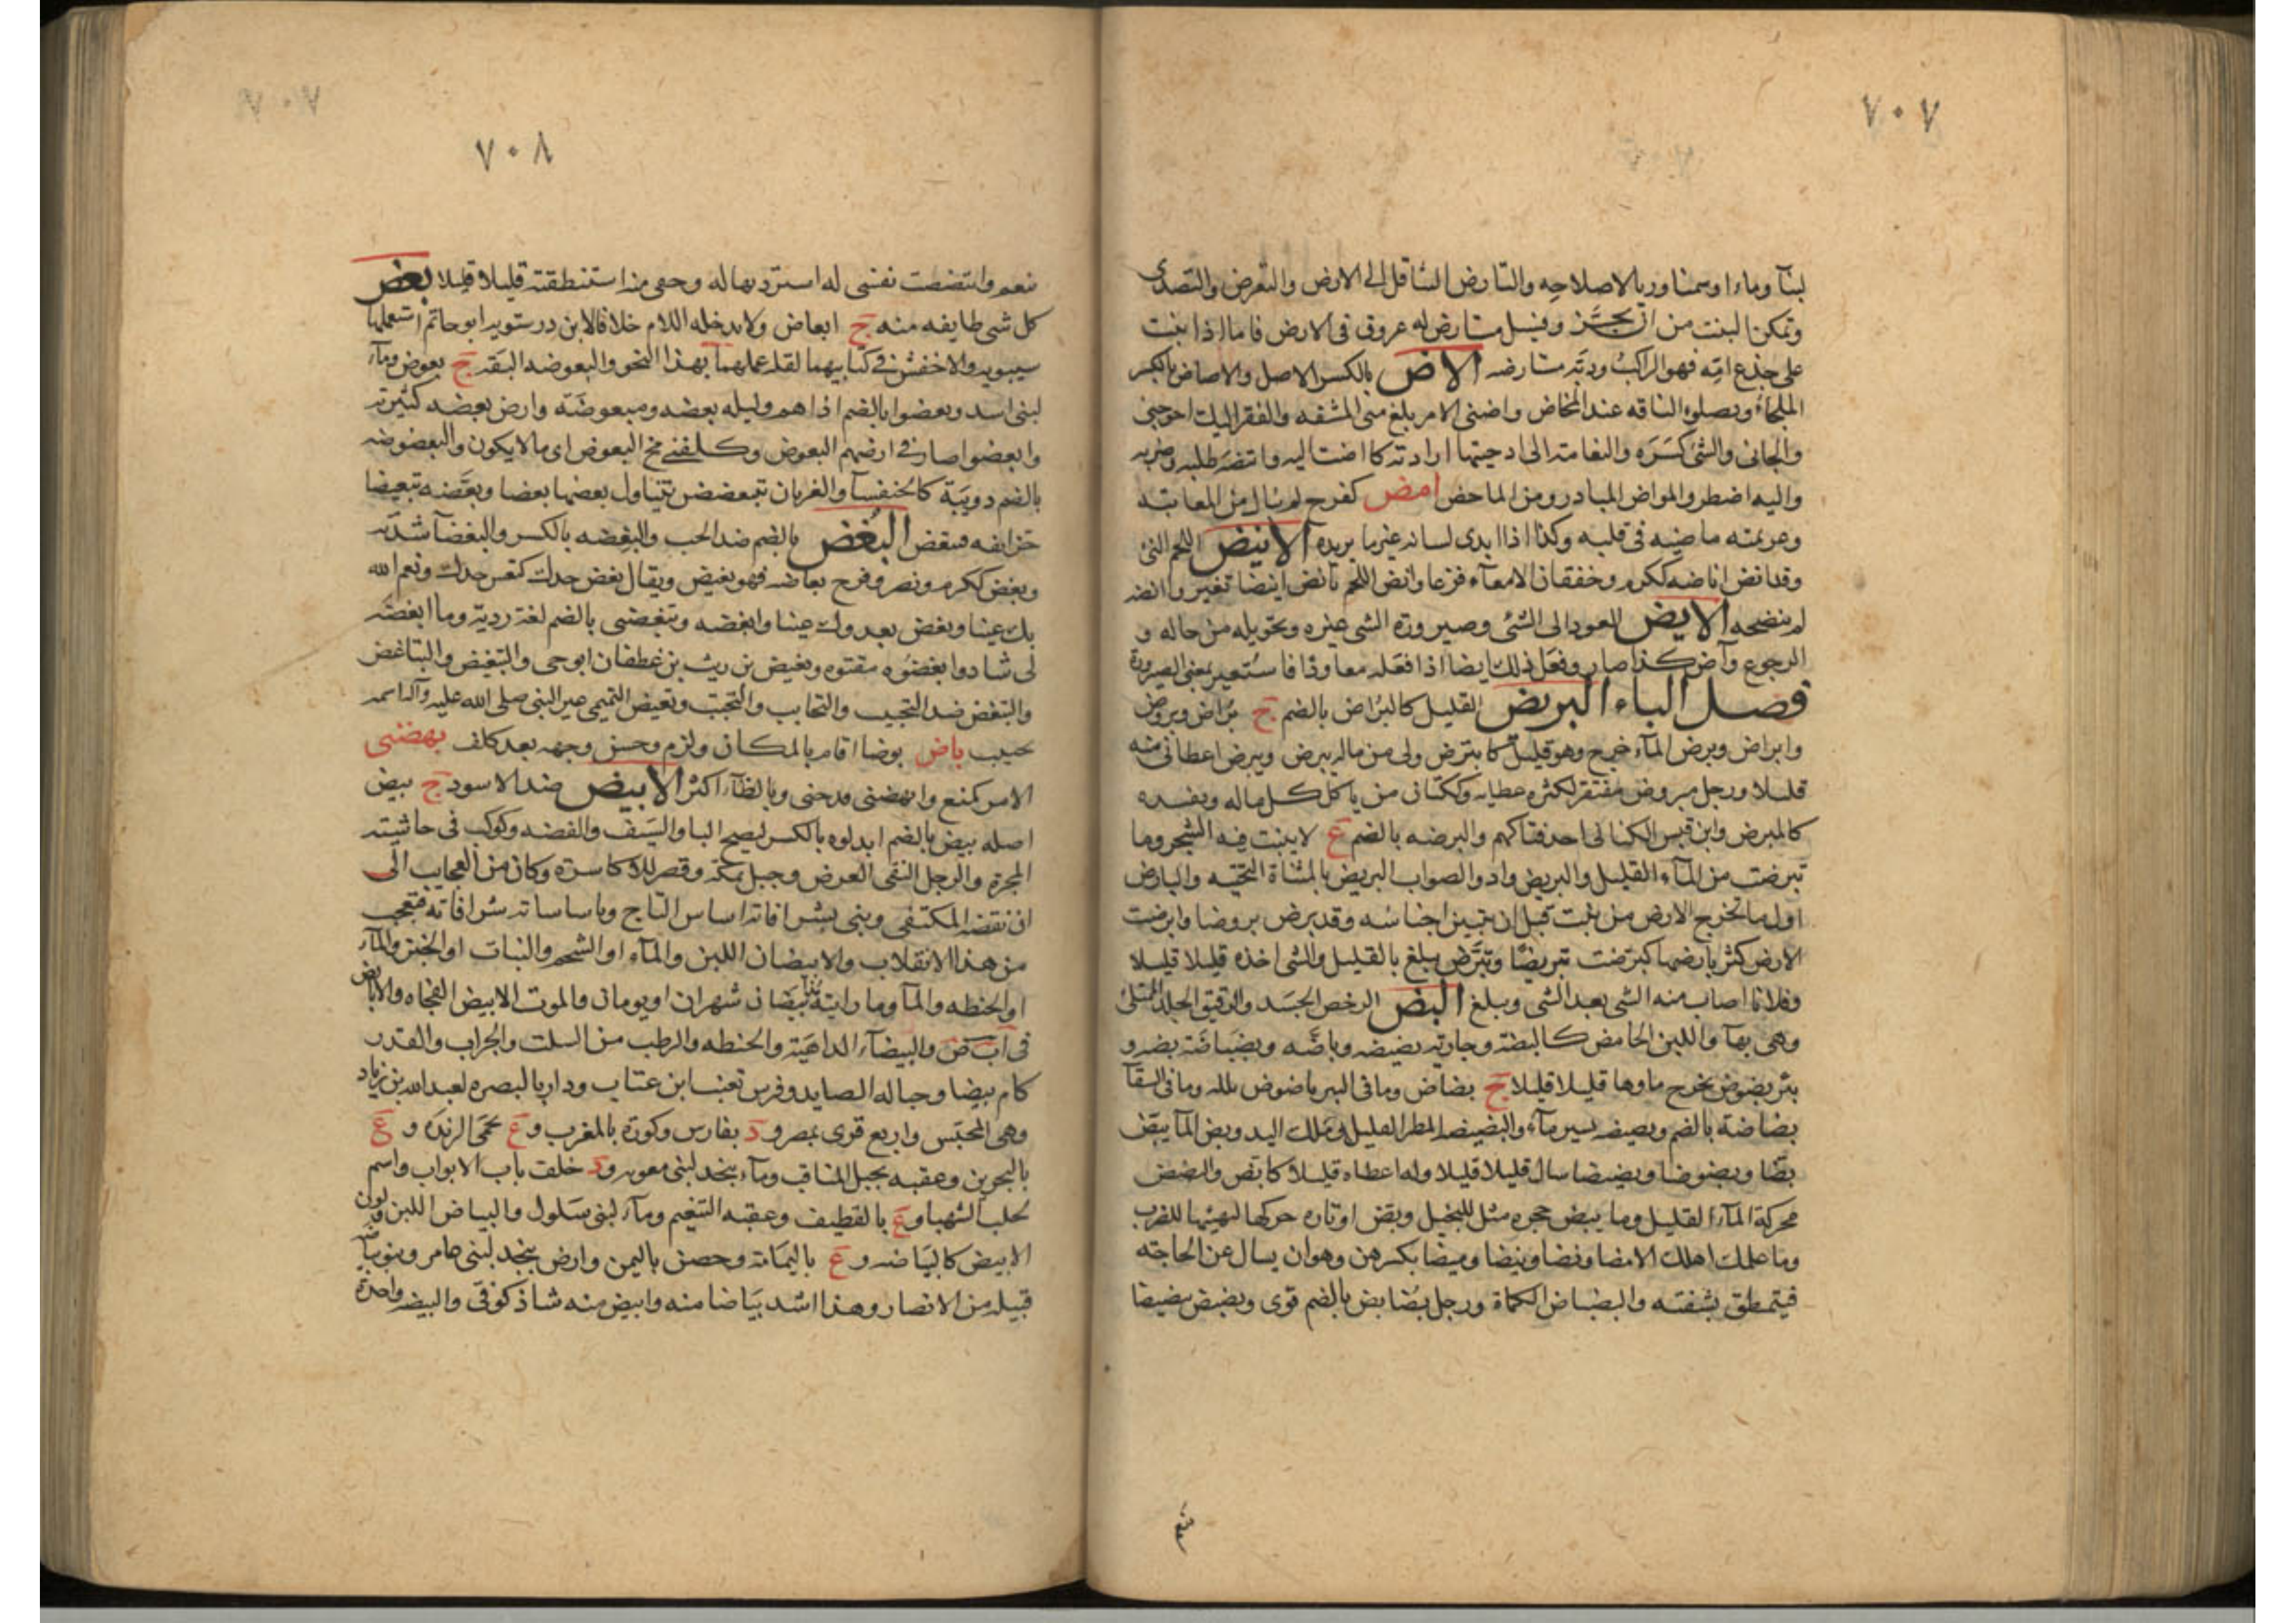 ٧٠٧
لبنآ وماءا وسمنا وربا لاصلاحه والتارض التثاقل الى الارض والتعرض والتصدى
وتمكن النبت من ان يجز وفسيل مستارض له عروق فى الارض فاما اذا نبت
على جذع امه فهو الراكب وديه مستارضه الاض بالكسر الاصل والاضاض بالكسر
الملجاء وتصلق الناقه عند المخاض واضنى الامر بلغ منى المشقه والفقر اليك احوجنى
والجانى والشئ كسره والنعامة الى ادحيتها ارادته كاضت اليه وائتضه طلبه وضربه
واليه اضطر والمواض المبادر ومن الماخض امض كفرح لم يبال من المعاتبة
وعزيمته ماضيه فى قلبه وكذا اذا ابدى لسانه غير ما يريده الانيض اللحم النئ
وقد انض اناضه ككرم وخفقان الامعآء فزعا وانض اللحم يانض انيضا تغير وانضه
لم ينضجه الايض العود الى الشئ وصيرورة الشى غيره وتحويله من حاله و
الرجوع وآض كذا صار وفعل ذلك ايضا اذا فعله معاودا فاستعير لمعنى الصيرورة
فصل الباء البريض القليل كالبراض بالضم ج براض وبروض
وابراض وبرض المآء خرج وهو قليل كابترض ولى من ماله يبرض ويبرض اعطانى منه
قليلا ورجل مبروض مفتقر لكثرة عطايه وككتان من ياكل كل ماله ويفسده
كالمبرض وابن قيس الكنانى احد فتاكهم والبرضه بالضم ع لا ينبت فيه الشجر وما
تبرضت من المآء القليل والبريض واد والصواب اليريض بالمثناة التحتيه والبارض
اول ما تخرج الارض من نبت قبل ان تتبين اجناسه وقد برض بروضا وابرضت
الارض كثر بارضها كبرضت تبريضا وتبرض تبلغ بالقليل والشى اخذه قليلا قليلا
وفلانا اصاب منه الشى بعد الشى وتبلغ البض الرخص الجسد والرقيق الجلد الممتلئ
وهى بهآ واللبن الحامض كالبضة وجارية بضيضه وباضه وبضباضة بضه و
بئر بضوض يخرج ماوها قليلا قليلا ج بضاض وما فى البير باضوض بلله وما فى السقآ
بضاضة بالضم وبضيضه يسير مآء والبضيضه المطر القليل وملك اليد وبض المآ يبض
بضا وبضوضا وبضيضا سال قليلا قليلا وله اعطاه قليلا كابض والبضض
محركة المآء القليل وما يبض حجره مثل للبخيل وبض اوتاره حركها ليهيئها للضرب
وما علمك اهلك الا مضا وبضا وميضا وبيضا بكسرهن وهو ان يسال عن الحاجة
فيتمطق بشفته والبضباض الكماة ورجل بضابض بالضم قوى وبضض تبضيضا
٧٠٨
تنعم وابتضضت نفسى له استزدتها له وحقى منه استنظفته قليلا قليلا بعض
كل شى طايفه منه ج ابعاض ولا يدخله اللام خلافا لابن درستويه ابو حاتم استعملها
سيبويه والاخفش فى كتابيهما لقله علمهما بهذا النحو والبعوضه البقه ج بعوض ومآء
لبنى اسد وبعضوا بالضم اذاهم وليله بعضه ومبعوضة وارض بعضه كثيرته
وابعضوا صار فى ارضهم البعوض وكلفنى مخ البعوض اى ما لا يكون والبعضوضه
بالضم دويبة كالخنفسآ والغربان تتبعضض يتناول بعضها بعضا وبعضه تبعيضا
جزاه فتبعض البغض بالضم ضد الحب والبغضه بالكسر والبغضآ شدته
وبغض ككرم ونصر وفرح بغاضه فهو بغيض ويقال بغض جدك كتعس جدك ونعم الله
بك عينا وبغض بعدوك عينا وابغضه ويبغضنى بالضم لغة رديه وما ابغضه
لى شاذ وابغضوه مقتوه وبغيض بن ريث بن غطفان ابو حى والتبغيض والتباغض
والتبغض ضد التحبيب والتحابب والتحبب وبغيض التميمى غير النبى صلى الله عليه وآله اسمه
بحبيب باض بوضا اقام بالمكان ولزم وحسن وجهه بعد كلف بهضنى
الامر كمنع وابهضنى فدحنى وبالظآء اكثر الابيض ضد الاسود ج بيض
اصله بيض بالضم ابدلوه بالكسر ليصح اليا والسيف والفضه وكوكب فى حاشيته
المجرة والرجل النقى العرض وجبل بمكة وقصر للاكاسرة وكان من العجايب الى
ان نقضه المكتفى وبنى بشرافاته اساس التاج وباساساته شرافاته فتعجب
من هذا الانقلاب والابيضان اللبن والمآء او الشحم والنبات او الخبز والمآء
او الحنطه والمآ وما رايته مذ ابيضان شهران او يومان والموت الابيض الفجاه والابايض
فى اب ض والبيضآء الداهية والحنطه والرطب من السلت والجراب والقدر
كام بيضا وحباله الصايد وفرس قعنب ابن عتاب ودار بالبصره لعبد الله بن زياد
وهى المخيس واربع قرى بمصر ود بفارس وكورة بالمغرب وع بحمى الربذة و ع
بالبحرين وعقبه بجبل المناقب ومآء بنجد لبنى معويه ود خلف باب الابواب واسم
لحلب الشهبا وع بالقطيف وعقبه التنعيم ومآء لبنى سلول والبياض اللبن ولون
الابيض كالبياضه وع باليمامة وحصن باليمن وارض بنجد لبنى عامر وبنو بياضه
قبيله من الانصار وهذا اشد بياضا منه وابيض منه شاذ كوفى والبيضه واحدة